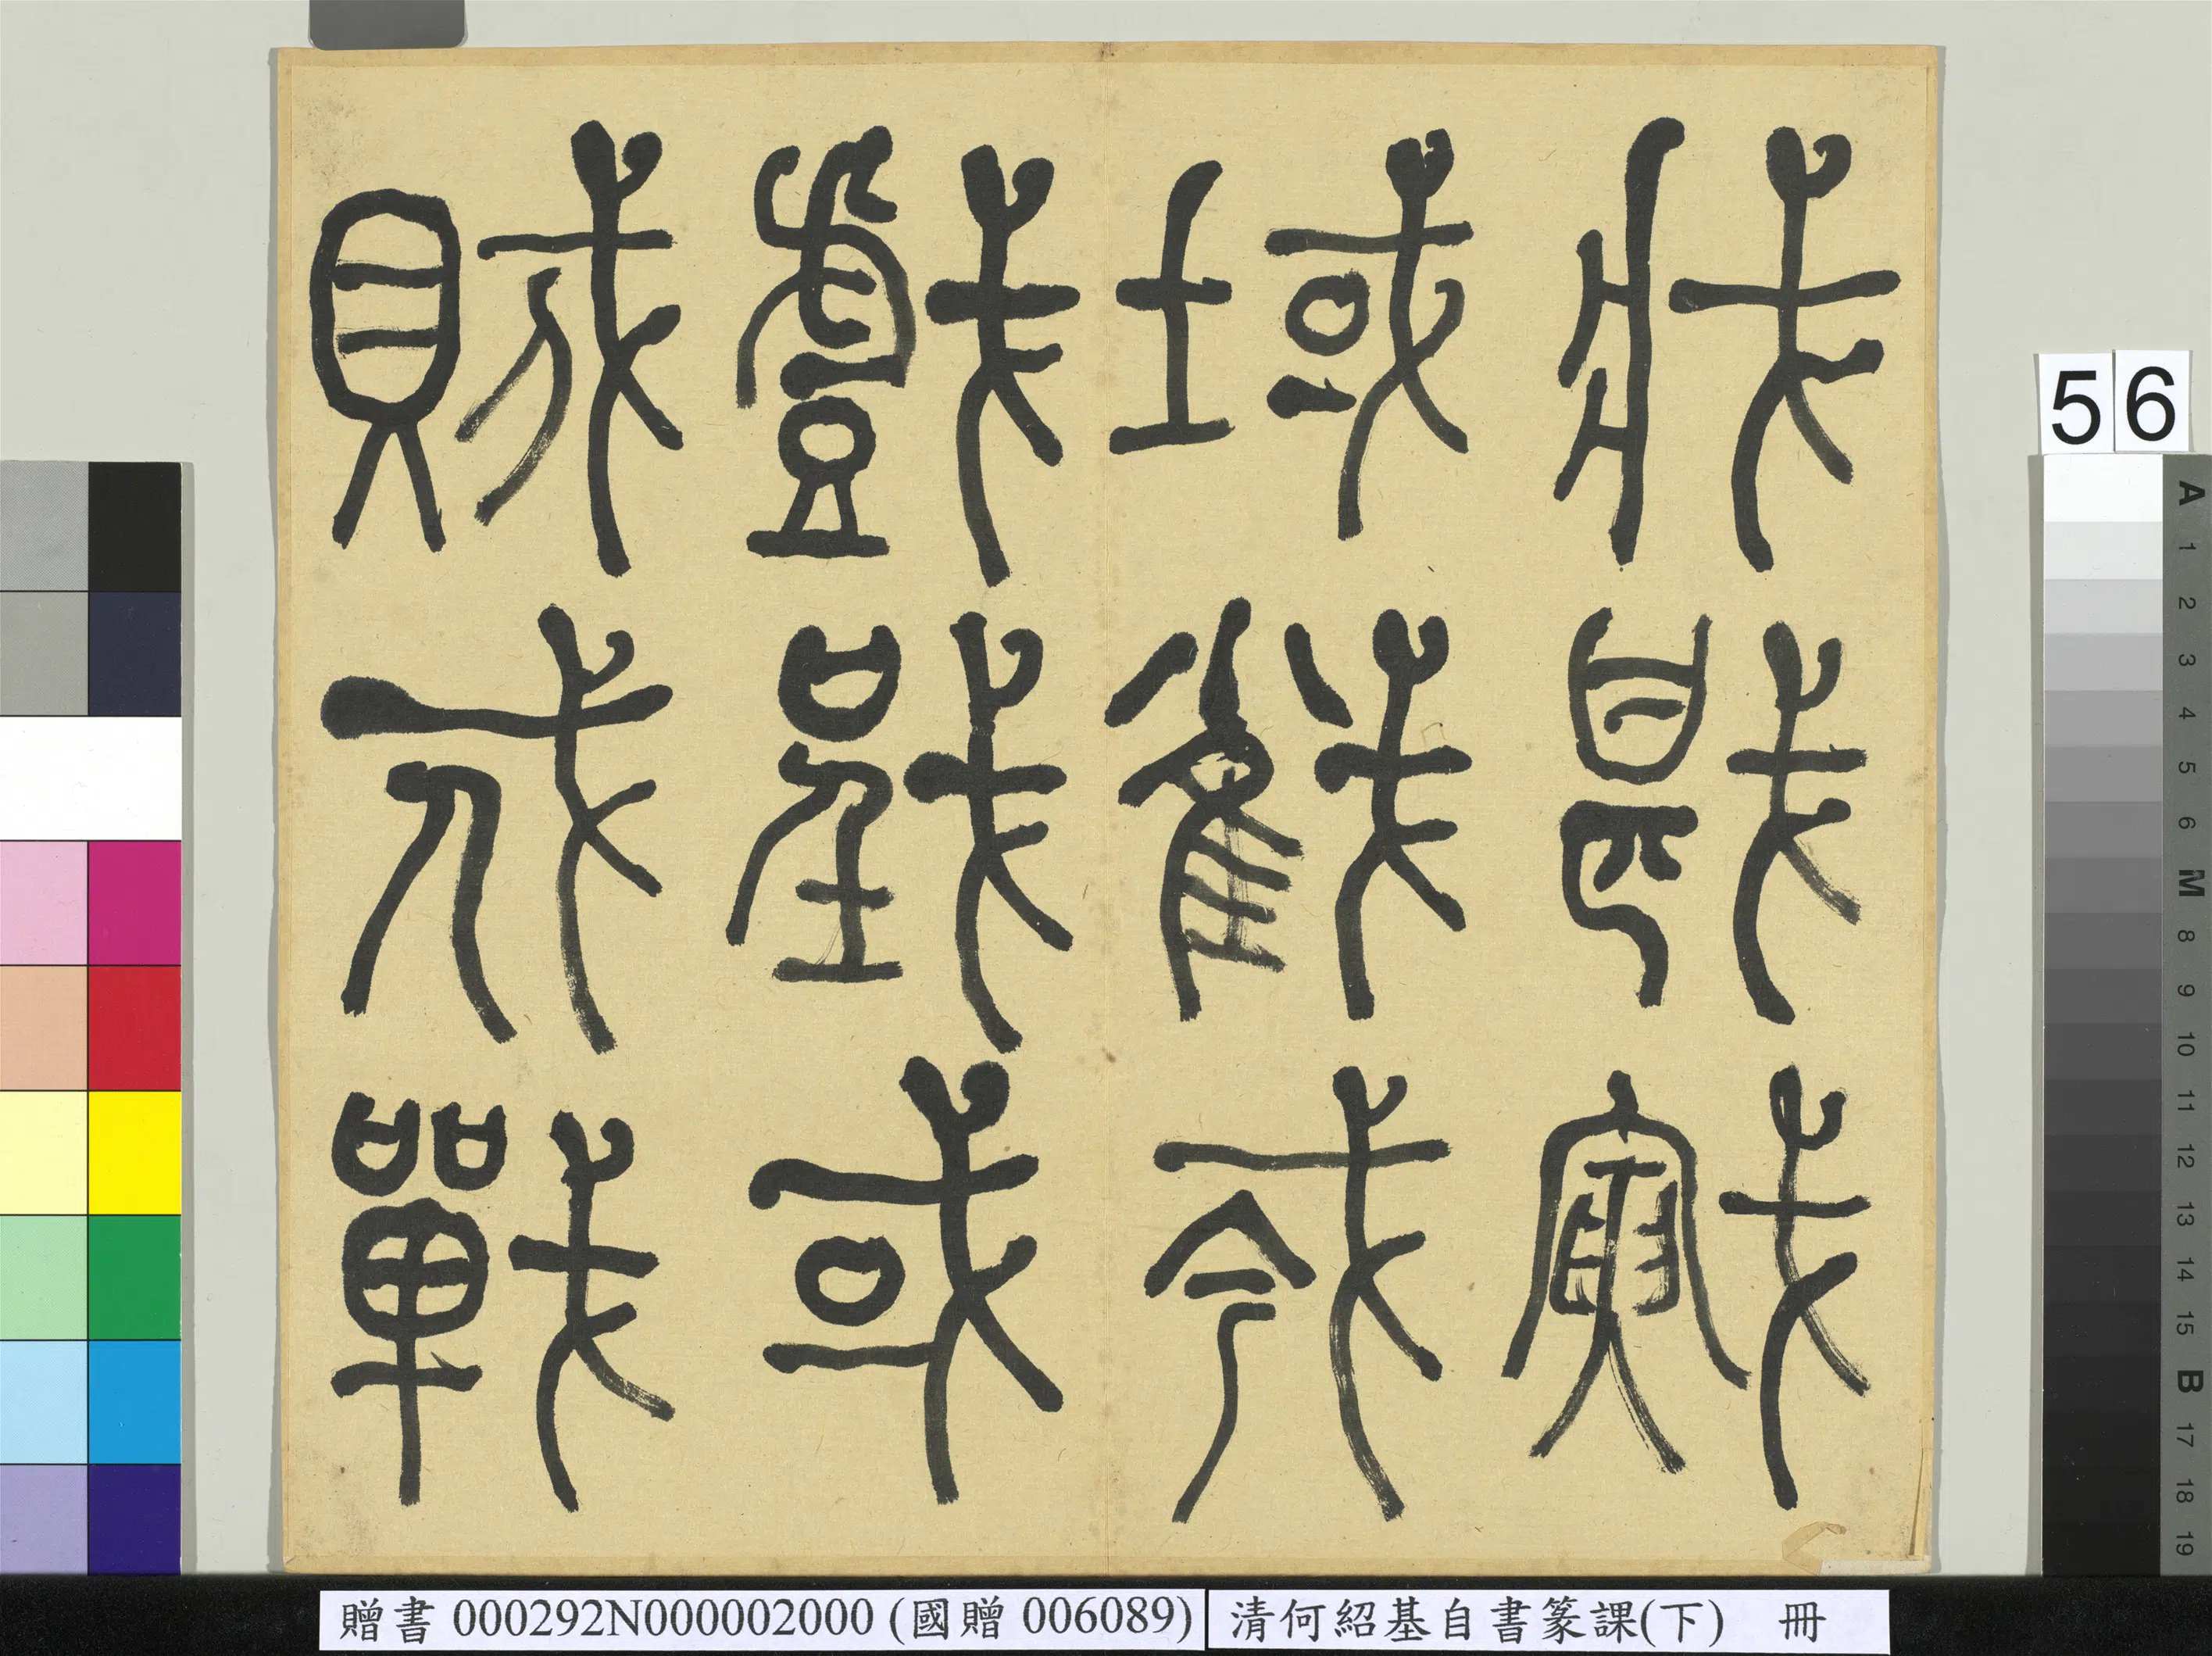 賊戍戰
戲戜或
域截𢦟
戕戡戭
56
A 1 2 3 4 5 6 M 8 9 10 11 12 13 14 15 B 17 18 19
贈書 000292N000002000 (國贈 006089)
清何紹基自書篆課(下) 冊